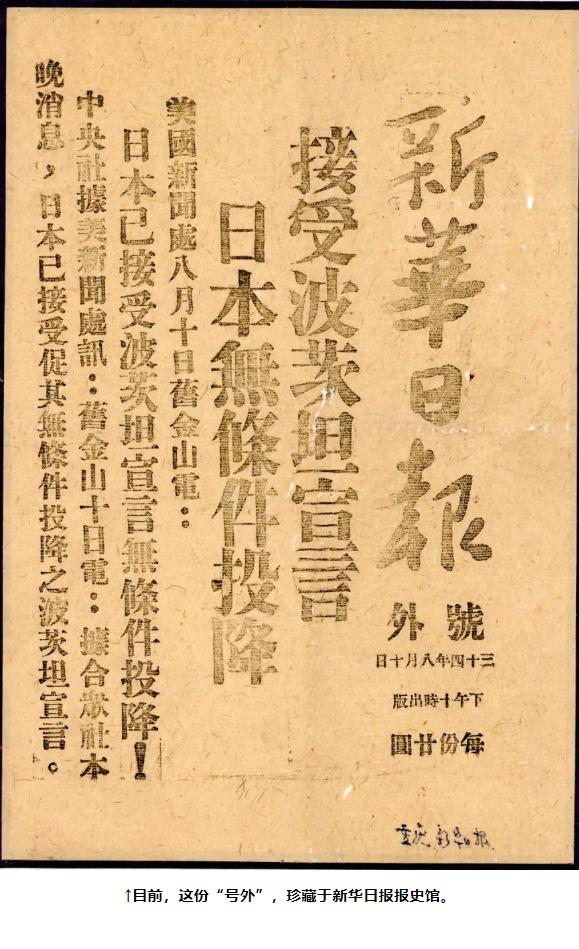 新華日報
號外
三十四年八月十日
下午十時出版
每份廿圓
接受波茨坦宣言
日本無條件投降
美國新聞處八月十日舊金山電：
日本已接受波茨坦宣言無條件投降！
中央社據美新聞處訊：舊金山十日電：據合眾社本
晚消息，日本已接受促其無條件投降之波茨坦宣言。
重庆新华日报
↑目前，这份“号外”，珍藏于新华日报报史馆。